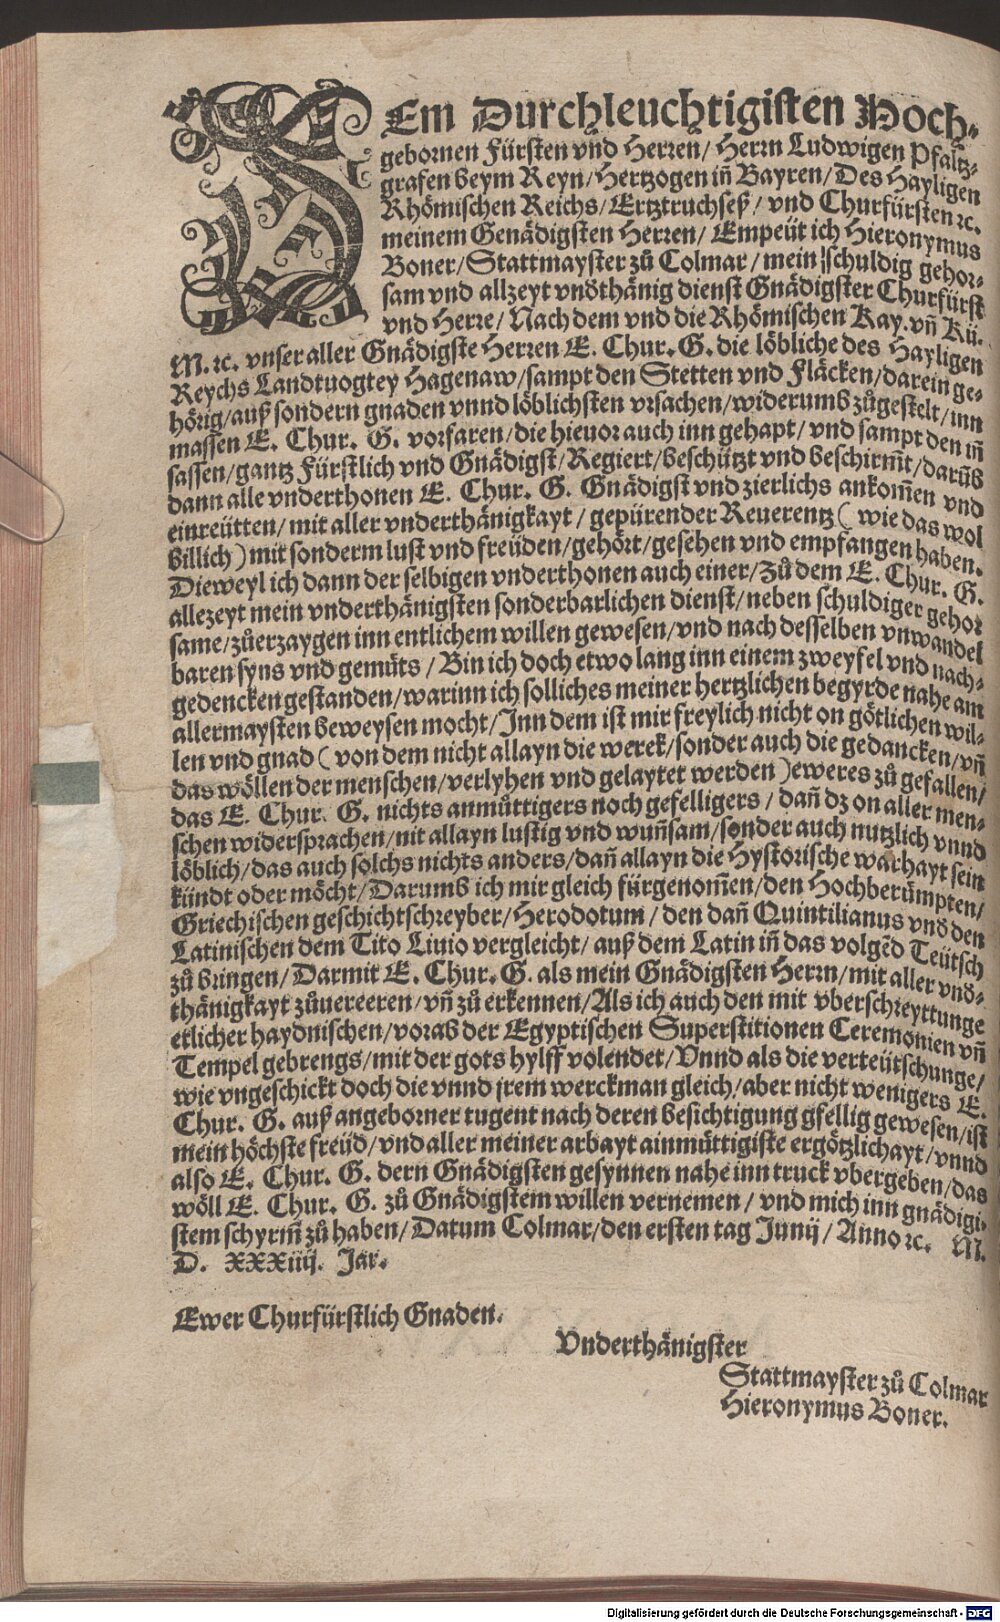 DEm Durchleuchtigisten Hoch-
gebornen Fürsten vnd Herren/ Herrn Ludwigen Pfaltz-
grafen beym Reyn/ Hertzogen iñ Bayren/ Des Hayligen
Rhömischen Reichs/ Ertztruchseß/ vnd Churfürsten ꝛc.
meinem Genädigsten Herren/ Empeüt ich Hieronymus
Boner/ Stattmayster zů Colmar/ mein schuldig gehor-
sam vnd allzeyt vnd̊thänig dienst Gnädigster Churfürst
vnd Herre/ Nach dem vnd die Rhömischen Kay. vñ Kü.
M. ꝛc. vnser aller Gnädigste Herren E. Chur. G. die löbliche des Hayligen
Reychs Landtuogtey Hagenaw/ sampt den Stetten vnd Fläcken/ darein ge-
hörig/ auß sondern gnaden vnnd löblichsten vrsachen/ widerumb zůgestelt/ inn
massen E. Chur. G. vorfaren/ die hieuor auch inn gehapt/ vnd sampt den iñ
sassen/ gantz Fürstlich vnd Gnädigst/ Regiert/ beschützt vnd beschirm̃t/ darũb
dann alle vnderthonen E. Chur. G. Gnädigst vnd zierlichs ankom̃en vnd
einreütten/ mit aller vnderthänigkayt/ gepürender Reuerentz ( wie das wol
billich ) mit sonderm lust vnd freüden/ gehört/ gesehen vnd empfangen haben.
Dieweyl ich dann der selbigen vnderthonen auch einer/ Zů dem E. Chur. G.
allezeyt mein vnderthänigsten sonderbarlichen dienst/ neben schuldiger gehor
same/ zůerzaygen inn entlichem willen gewesen/ vnd nach desselben vnwandel
baren syns vnd gemüts/ Bin ich doch etwo lang inn einem zweyfel vnd nach-
gedencken gestanden/ warinn ich solliches meiner hertzlichen begyrde nahe am
allermaysten beweysen mocht/ Inn dem ist mir freylich nicht on götlichen wil-
len vnd gnad ( von dem nicht allayn die werck/ sonder auch die gedancken/ vñ
das wöllen der menschen/ verlyhen vnd gelaytet werden ) eweres zů gefallen/
das E. Chur. G. nichts anmůttigers noch gefelligers/ dañ dz on aller men-
schen widersprachen/ nit allayn lustig vnd wuñsam/ sonder auch nutzlich vnnd
löblich/ das auch solchs nichts anders/ dañ allayn die Hystorische warhayt sein
kündt oder möcht/ Darumb ich mir gleich fürgenom̃en/ den Hochberümpten/
Griechischen geschichtschreyber/ Herodotum/ den dañ Quintilianus vnd̊ den
Latinischen dem Tito Liuio vergleicht/ auß dem Latin iñ das volgẽd Teütsch
zů bringen/ Darmit E. Chur. G. als mein Gnädigsten Herrn/ mit aller vnd̊-
thänigkayt zůuereeren/ vñ zů erkennen/ Als ich auch den mit vberschreyttunge
etlicher haydnischen/ vorab der Egyptischen Superstitionen Ceremonien vñ
Tempel gebrengs/ mit der gots hylff volendet/ Vnnd als die verteütschunge/
wie vngeschickt doch die vnnd jrem werckman gleich/ aber nicht wenigers E.
Chur. G. auß angeborner tugent nach deren besichtigung gfellig gewesen/ ist
mein höchste freüd/ vnd aller meiner arbayt ainmüttigiste ergötzlichayt/ vnnd
also E. Chur. G. dern Gnädigsten gesynnen nahe inn truck vbergeben/ das
wöll E. Chur. G. zů Gnädigstem willen vernemen/ vnd mich inn gnädigi-
stem schyrm̃ zů haben/ Datum Colmar/ den ersten tag Junij/ Anno ꝛc. M.
D. XXXiiij. Jar.
Ewer Churfürstlich Gnaden.
Vnderthänigster
Stattmayster zů Colmar
Hieronymus Boner.
Digitalisierung gefördert durch die Deutsche Forschungsgemeinschaft - DFG